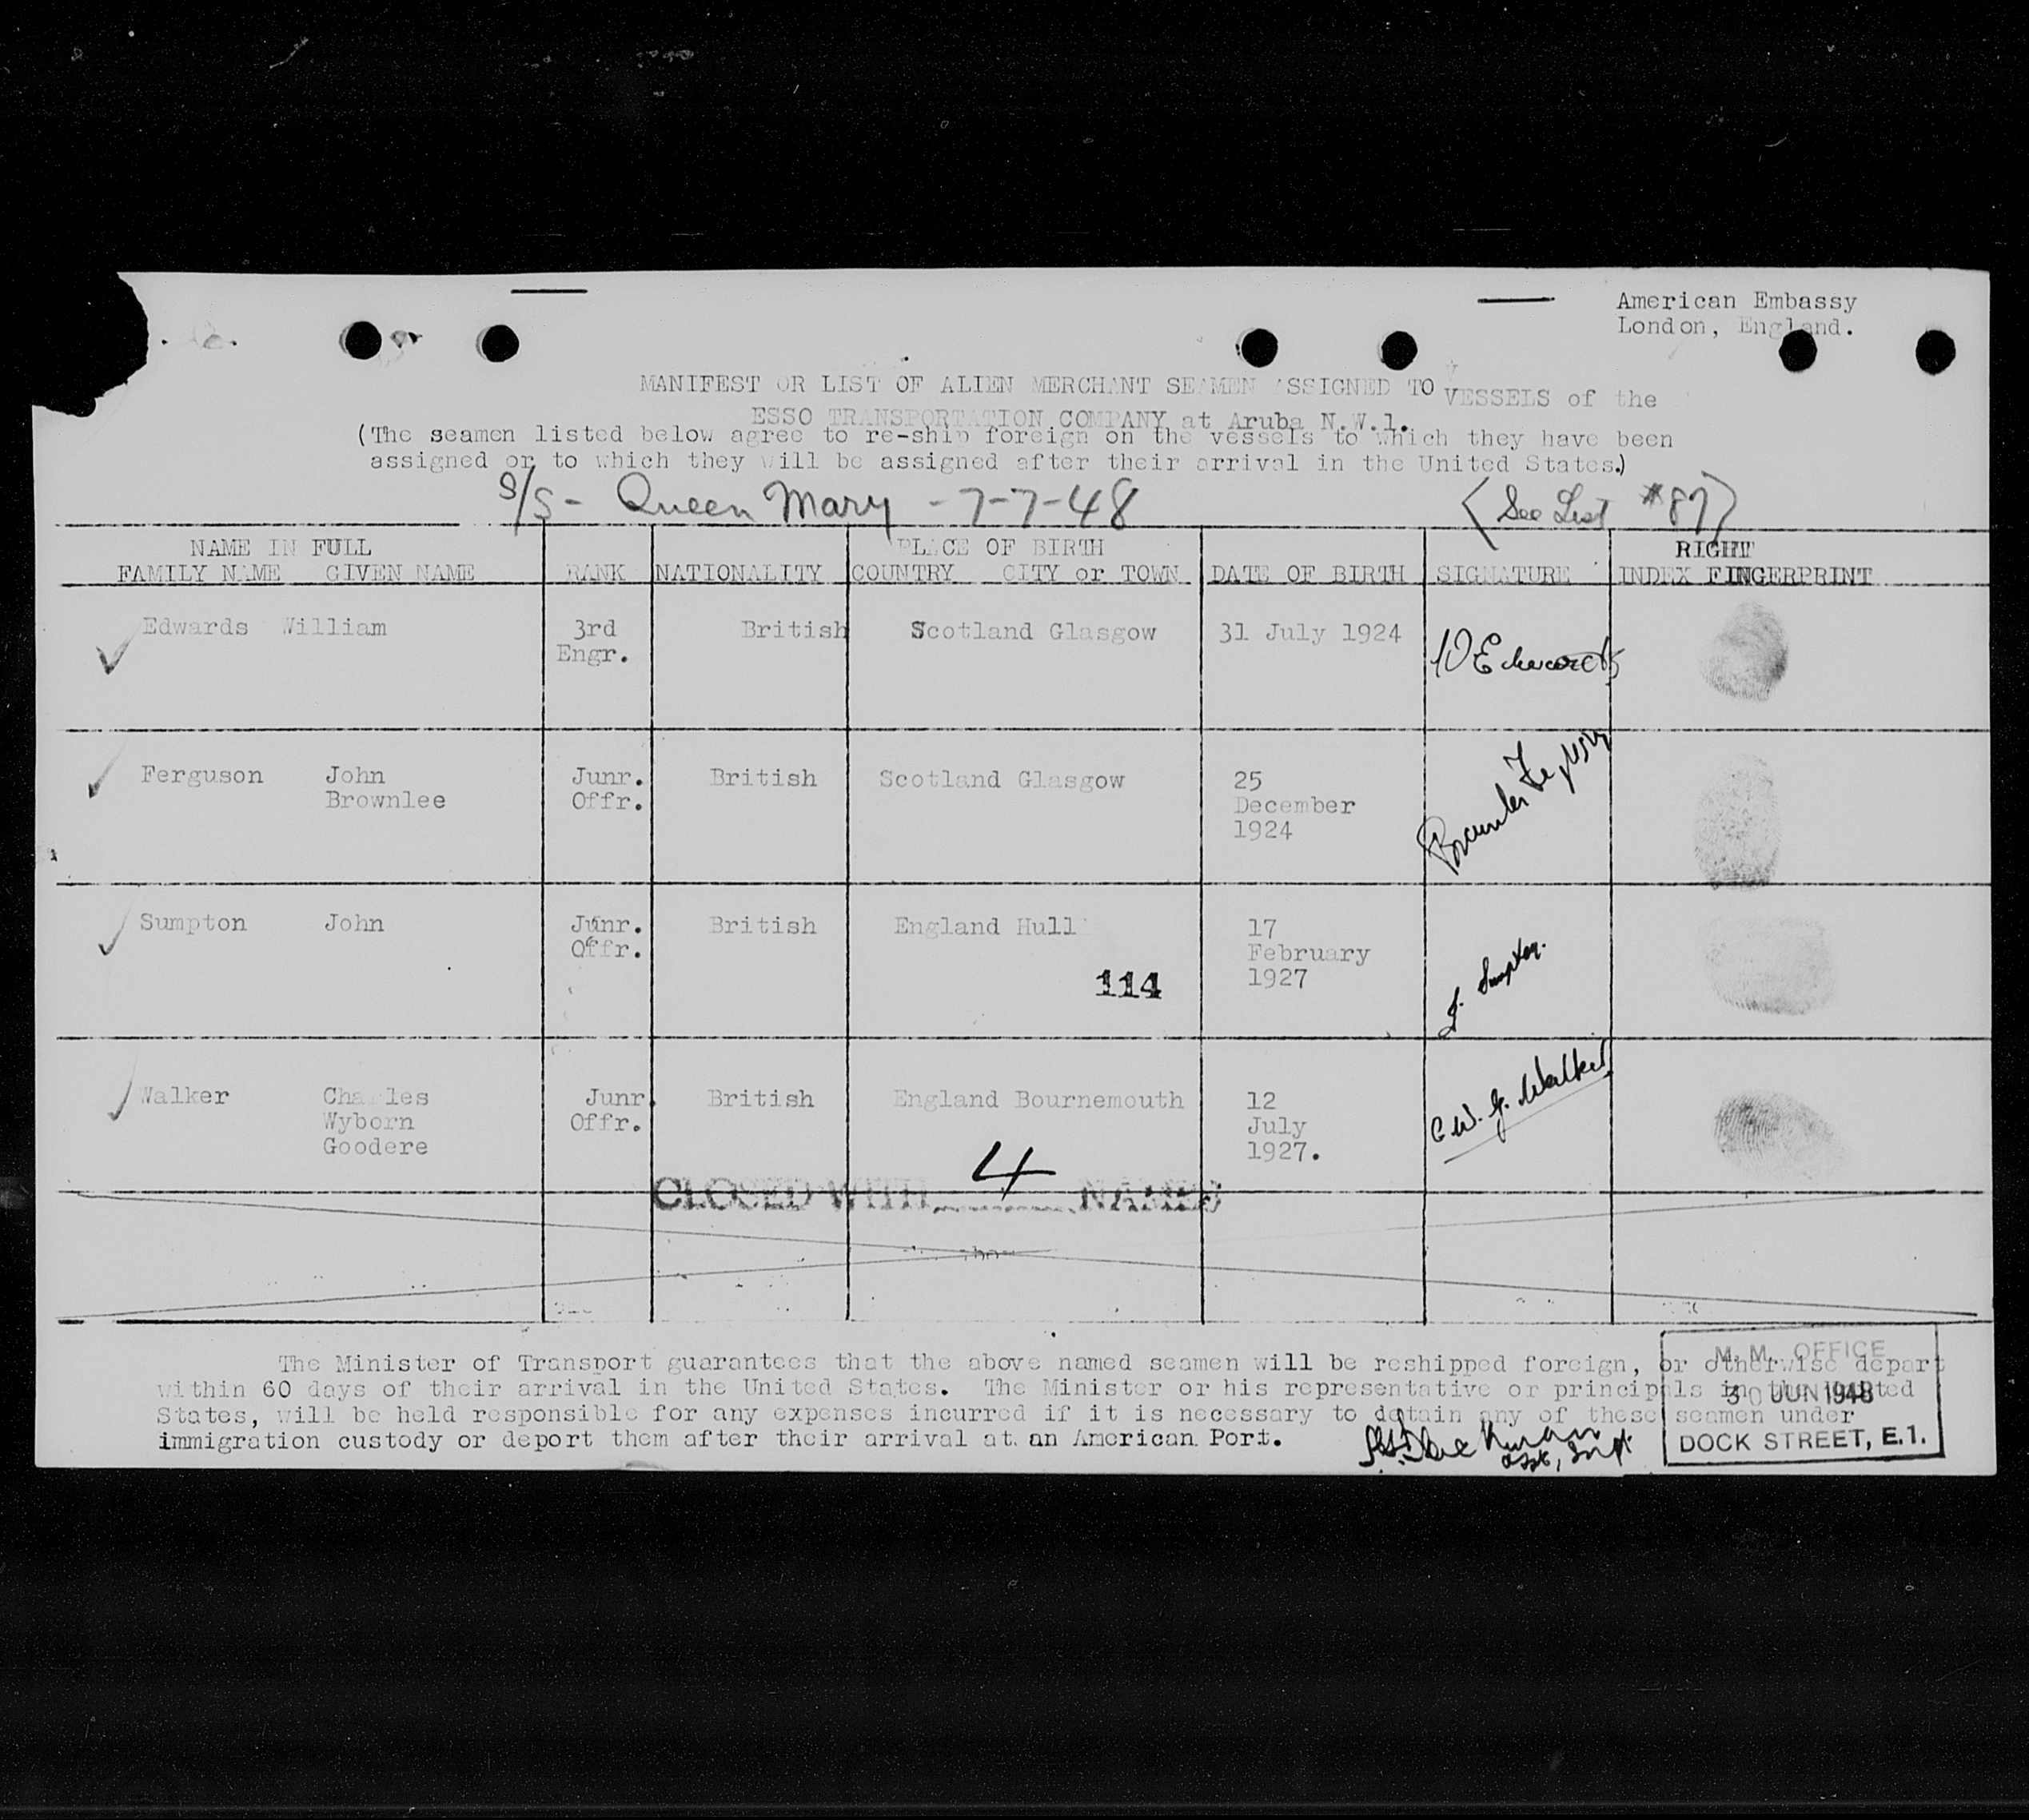 American Embassy
London, England.
MANIFEST OR LIST OF ALIEN MERCHANT SEAMEN ASSIGNED TO VESSELS of the
ESSO TRANSPORTATION COMPANY at Aruba N.W.1.
(The seamen listed below agree to re-ship foreign on the vessels to which they have been
assigned or to which they will be assigned after their arrival in the United States.)
S/S - Queen Mary - 7-7-48 (See List #87)
NAME IN FULL PLACE OF BIRTH RIGHT
FAMILY NAME GIVEN NAME RANK NATIONALITY COUNTRY CITY or TOWN DATE OF BIRTH SIGNATURE INDEX FINGERPRINT
Edwards William 3rd British Scotland Glasgow 31 July 1924
Engr. W Edwards
Ferguson John Junr. British Scotland Glasgow 25
Brownlee Offr. December
1924
Brownlee Ferguson
Sumpton John Junr. British England Hull 17
Offr. February
114 1927
J. Sumpton.
Walker Charles Junr. British England Bournemouth 12
Wyborn Offr. July
Goodere 1927.
C.W.G. Walker
CLOSED WITH 4 NAMES
The Minister of Transport guarantees that the above named seamen will be reshipped foreign, or otherwise depart
within 60 days of their arrival in the United States. The Minister or his representative or principals in the United
States, will be held responsible for any expenses incurred if it is necessary to detain any of these seamen under
immigration custody or deport them after their arrival at an American Port.
Asst, Supt
M. M. OFFICE
30 JUN 1948
DOCK STREET, E.1.